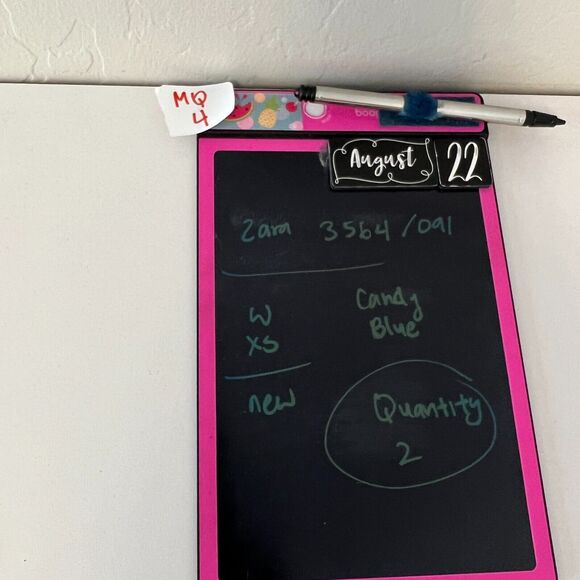 MQ
4
boo
August 22
Zara 3564/091
W
XS
Candy
Blue
new
Quantity
2